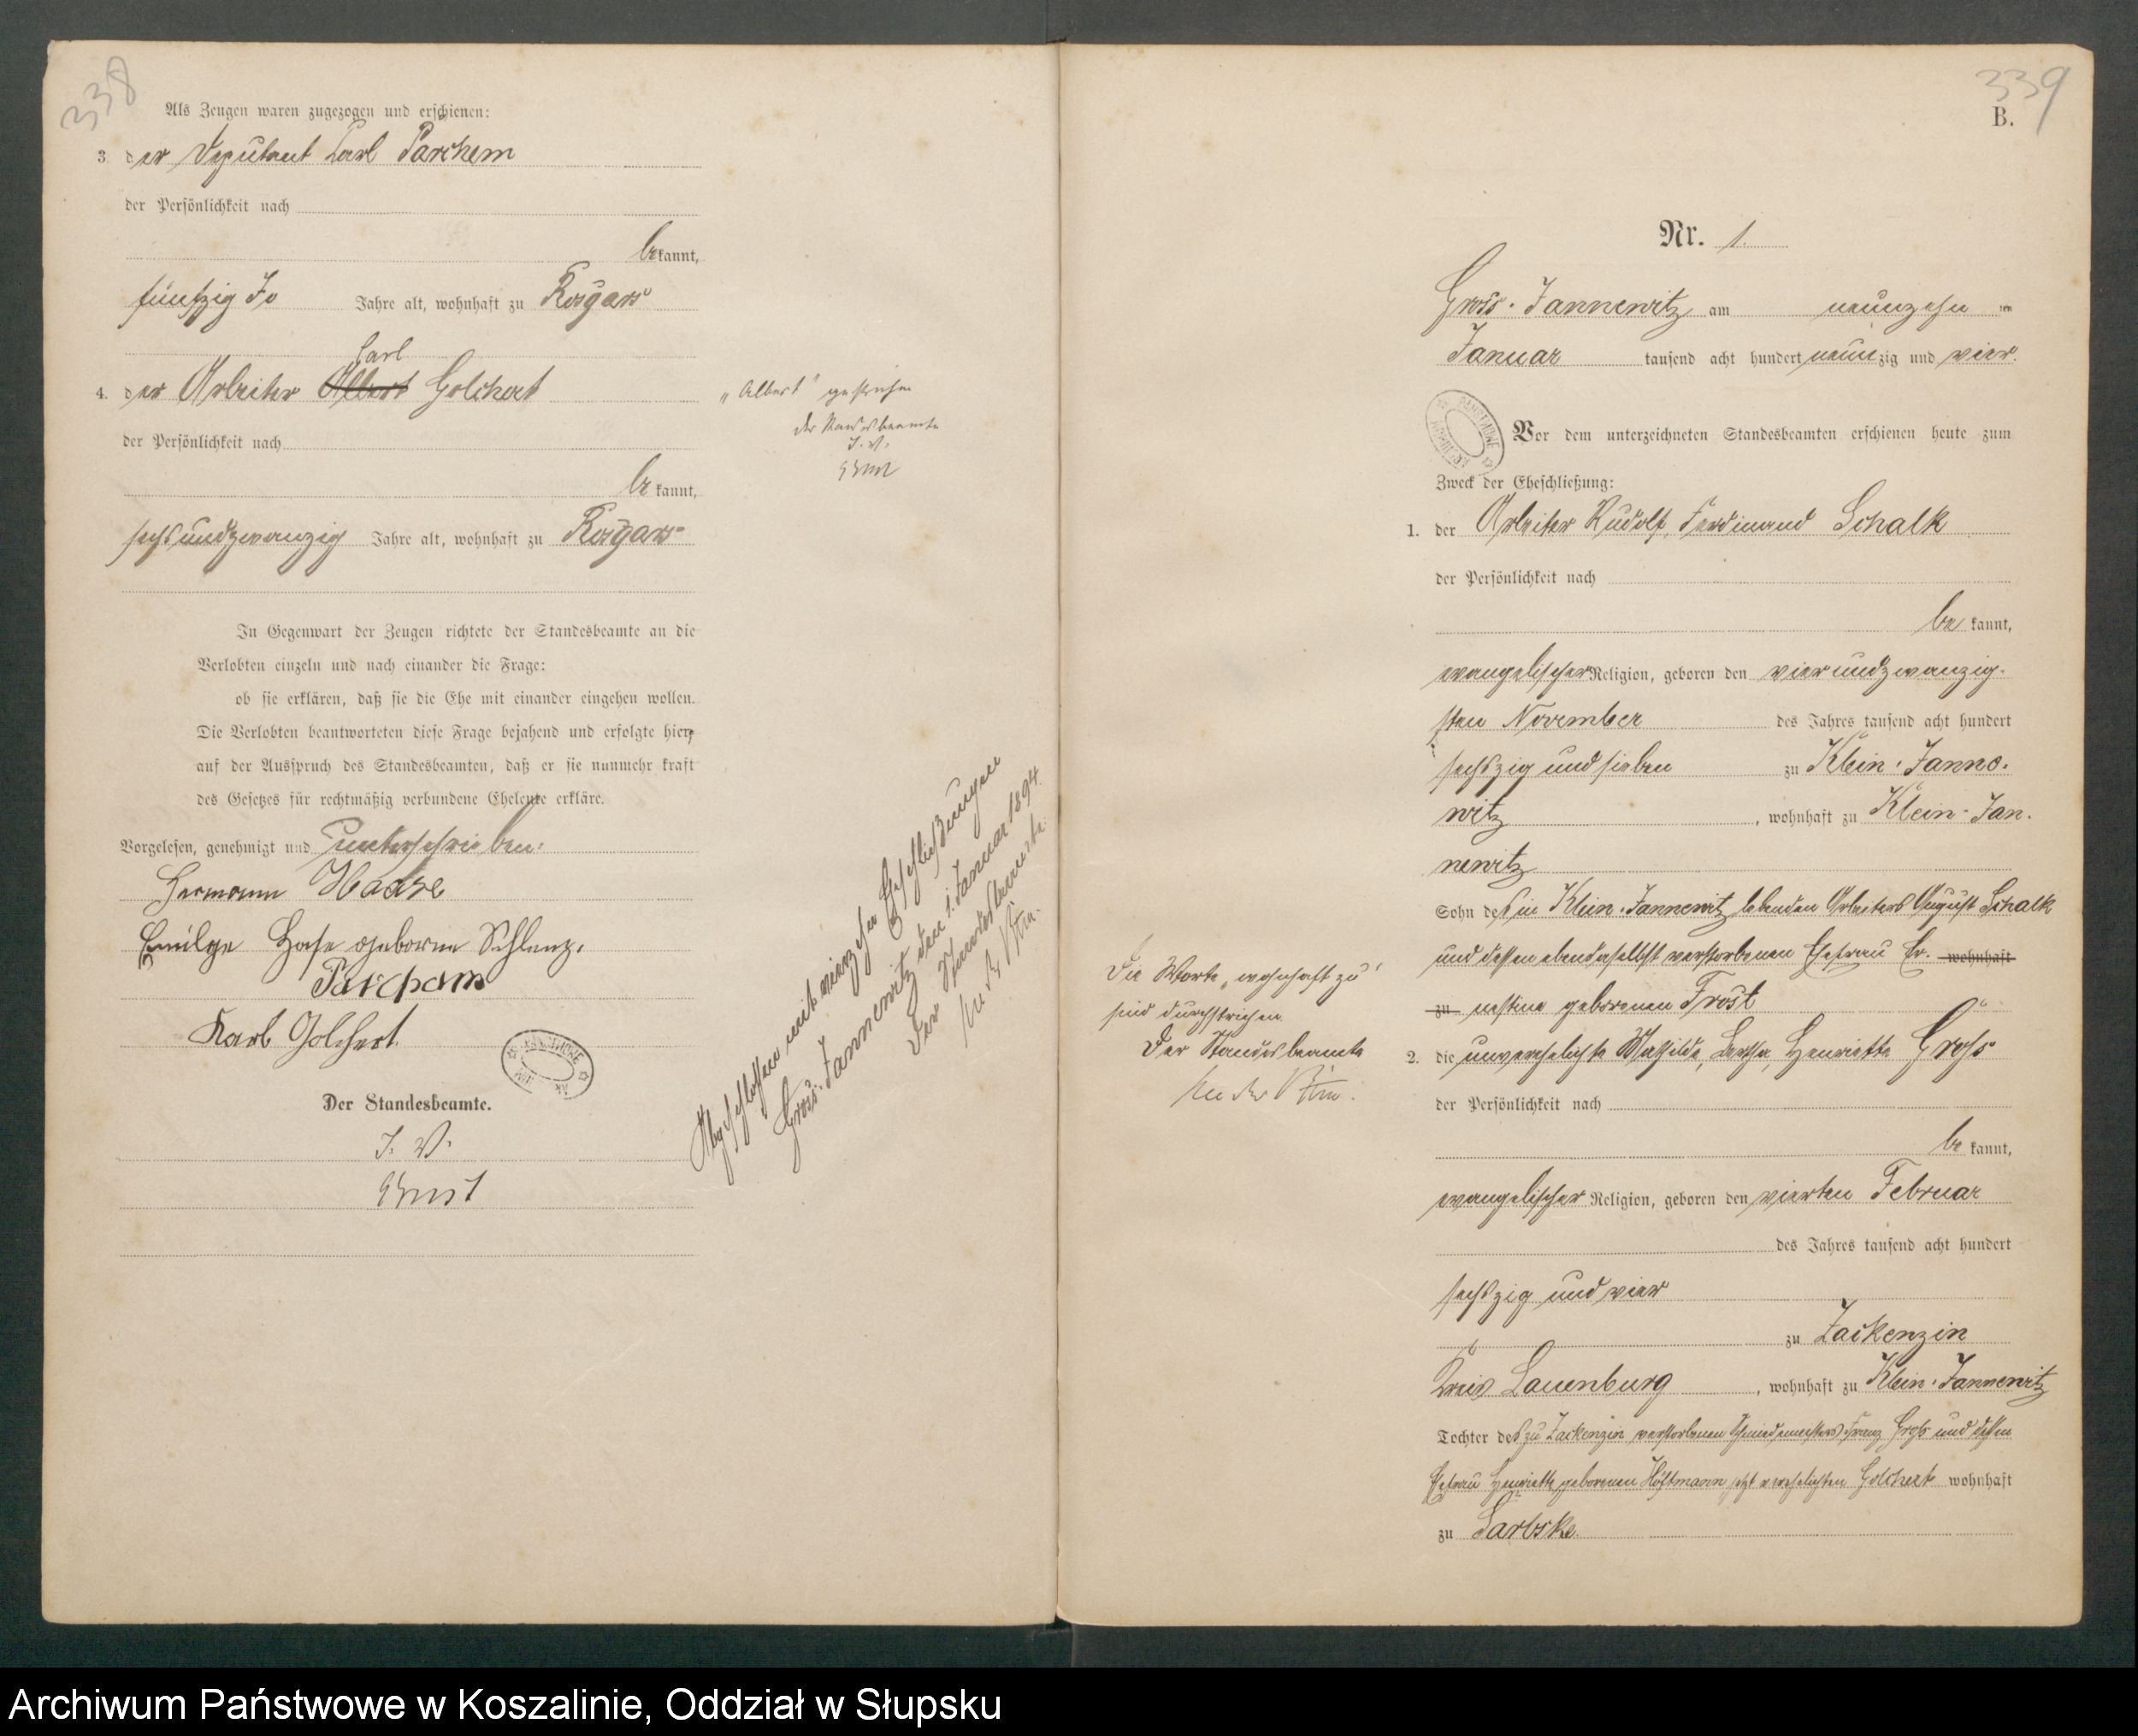 338
Als Zeugen waren zugezogen und erschienen:
3. der Deputant Carl Parchem
der Persönlichkeit nach
bekannt,
fünfzig Jahre alt, wohnhaft zu Roĩgars
Carl
4. der Arbeiter Albert Golchert
der Persönlichkeit nach
bekannt,
sechsundzwanzig Jahre alt, wohnhaft zu
In Gegenwart der Zeugen richtete der Standesbeamte an die
Verlobten einzeln und nach einander die Frage:
ob sie erklären, daß sie die Ehe mit einander eingehen wollen.
Die Verlobten beantworteten diese Frage bejahend und erfolgte hier-
auf der Ausspruch des Standesbeamten, daß er sie nunmehr kraft
des Gesetzes für rechtmäßig verbundene Eheleute erkläre.
Vorgelesen, genehmigt und unterschrieben:
Hermann Haase
Emilge Hase geborne Schlenz.
Parchem
Karl Golchert
Der Standesbeamte.
I. V.
„Albert" gestrichen
Der Standesbeamte
I. V.
Abgeschlossen mit vierzehn Eheschließungen
Gross-Jannewitz den 1. Januar 1894.
Der Standesbeamte.
339
B.
Nr. 1.
Gross-Jannewitz am neunzehn ten
Januar tausend acht hundert neunzig und vier.
Vor dem unterzeichneten Standesbeamten erschienen heute zum
Zweck der Eheschließung:
1. der Arbeiter Rudolf, Ferdinand Schalk
der Persönlichkeit nach
bekannt,
evangelischer Religion, geboren den vierundzwanzig-
sten November des Jahres tausend acht hundert
sechszig und sieben zu Klein-Janne-
witz, wohnhaft zu Klein-Jan-
newitz
Sohn des in Klein-Jannewitz lebenden Arbeiters August Schalk
und dessen ebendaselbst verstorbenen Ehefrau Er- wohnhaft
zu nestine geborenen Frost
2. die unverehelichte Mathilde, Bertha, Henriette Gross
der Persönlichkeit nach
bekannt,
evangelischer Religion, geboren den vierten Februar
des Jahres tausend acht hundert
sechszig und vier
zu Zackenzin
Kreis Lauenburg, wohnhaft zu Klein-Jannewitz
Tochter des zu Zackenzin verstorbenen Schmiedemeisters Franz Gross und dessen
Ehefrau Henriette geborenen Höftmann jetzt verehelichten Golchert wohnhaft
zu Sarbske
Die Worte „wohnhaft zu"
sind durchstrichen.
Der Standesbeamte
Archiwum Państwowe w Koszalinie, Oddział w Słupsku